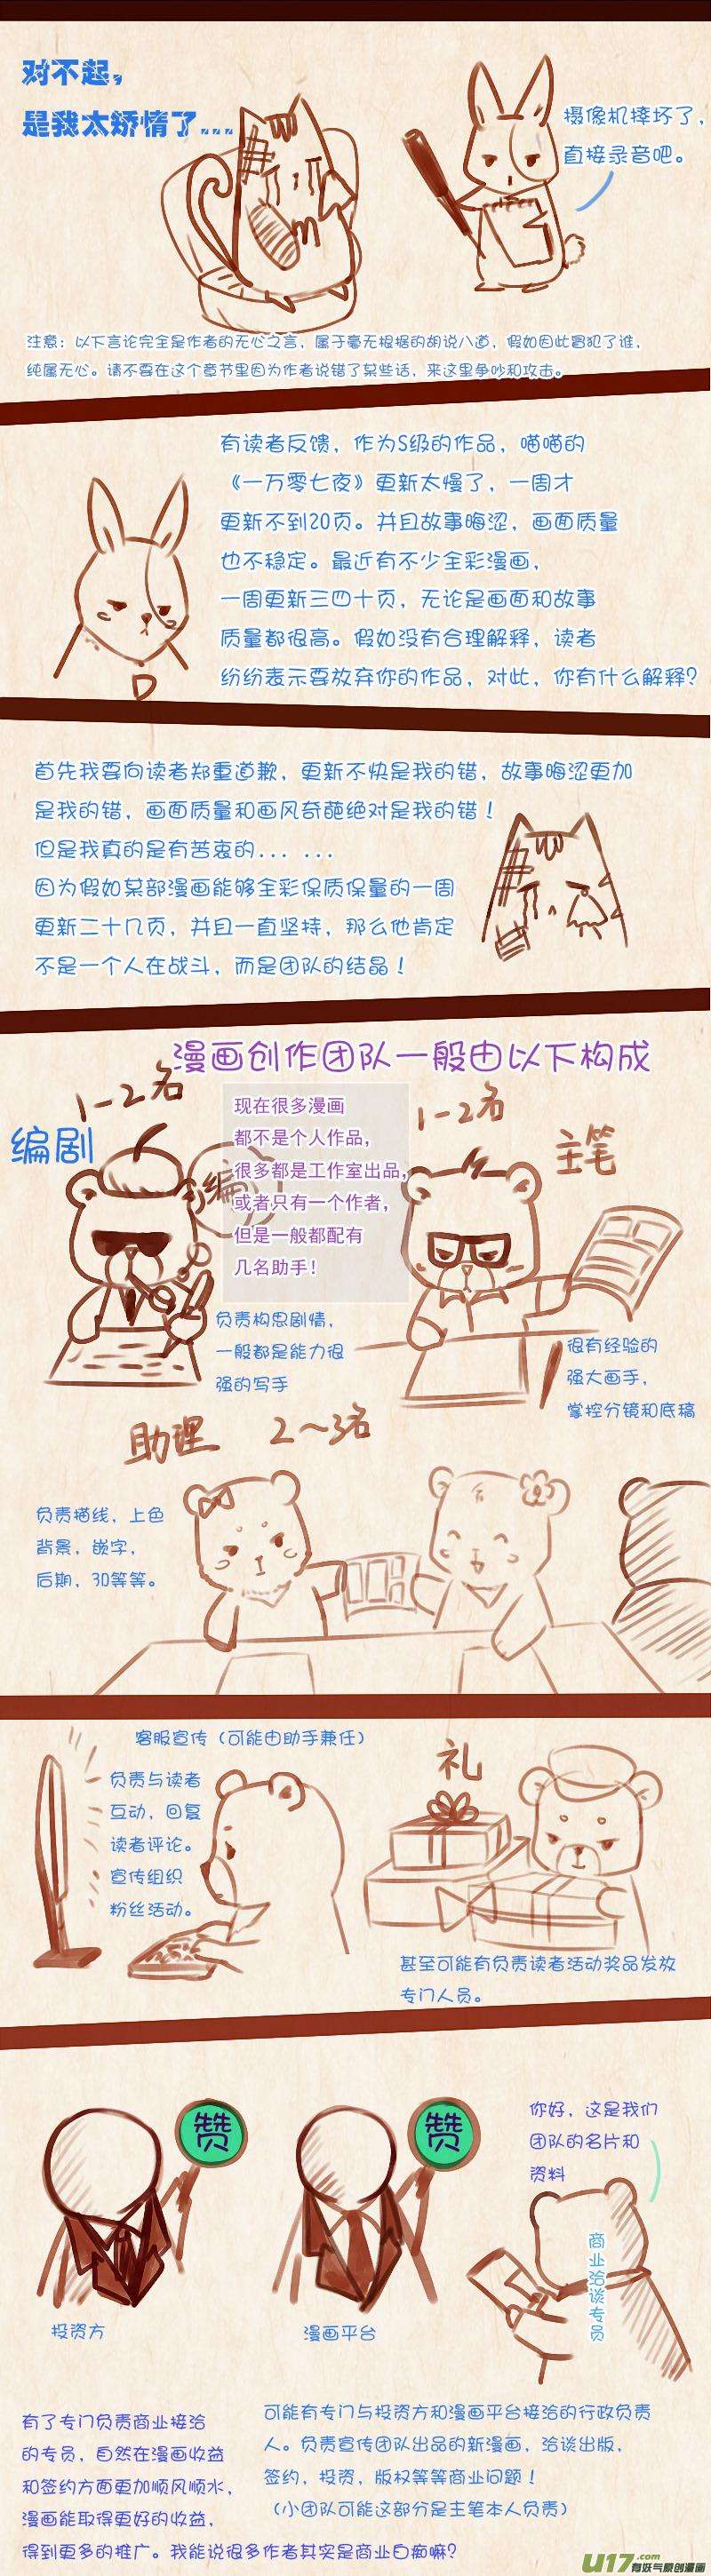 对不起，
是我太矫情了...
摄像机摔坏了，
直接录音吧。
注意：以下言论完全是作者的无心之言，属于毫无根据的胡说八道，假如因此冒犯了谁，
纯属无心。请不要在这个章节里因为作者说错了某些话，来这里争吵和攻击。
有读者反馈，作为S级的作品，喵喵的
《一万零七夜》更新太慢了，一周才
更新不到20页。并且故事晦涩，画面质量
也不稳定。最近有不少全彩漫画，
一周更新三四十页，无论是画面和故事
质量都很高。假如没有合理解释，读者
纷纷表示要放弃你的作品，对此，你有什么解释？
首先我要向读者郑重道歉，更新不快是我的错，故事晦涩更加
是我的错，画面质量和画风奇葩绝对是我的错！
但是我真的是有苦衷的... ...
因为假如某部漫画能够全彩保质保量的一周
更新二十几页，并且一直坚持，那么他肯定
不是一个人在战斗，而是团队的结晶！
漫画创作团队一般由以下构成
1-2名
编剧
编
现在很多漫画
都不是个人作品，
很多都是工作室出品，
或者只有一个作者，
但是一般都配有
几名助手！
1-2名
主笔
负责构思剧情，
一般都是能力很
强的写手
很有经验的
强大画手，
掌控分镜和底稿
助理 2～3名
负责描线，上色
背景，嵌字，
后期，3D等等。
客服宣传（可能由助手兼任）
负责与读者
互动，回复
读者评论。
宣传组织
粉丝活动。
礼
甚至可能有负责读者活动奖品发放
专门人员。
赞
赞
你好，这是我们
团队的名片和
资料
商业洽谈专员
投资方
漫画平台
有了专门负责商业接洽
的专员，自然在漫画收益
和签约方面更加顺风顺水，
漫画能取得更好的收益，
得到更多的推广。我能说很多作者其实是商业白痴嘛？
可能有专门与投资方和漫画平台接洽的行政负责
人。负责宣传团队出品的新漫画，洽谈出版，
签约，投资，版权等等商业问题！
（小团队可能这部分是主笔本人负责）
U17.com
有妖气原创漫画